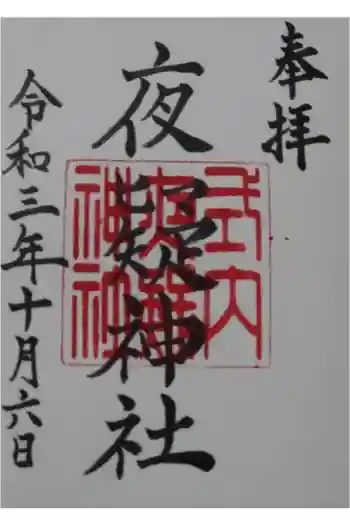 奉拝
夜疑神社
令和三年十月六日
式内